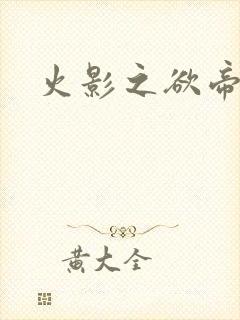 火影之欲帝
黄大全